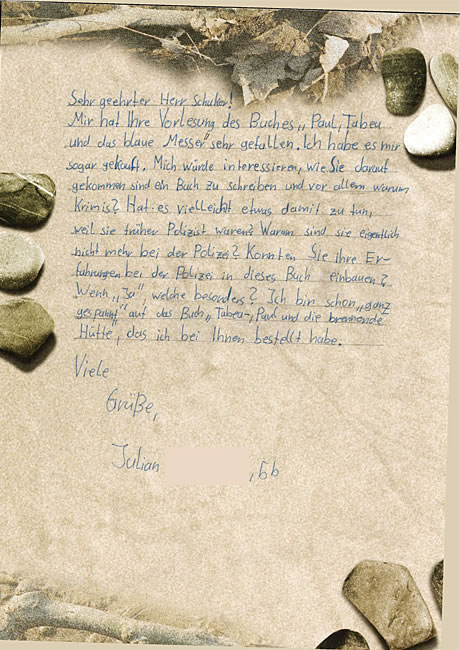 Sehr geehrter Herr Schulter!
Mir hat Ihre Vorlesung des Buches „Paul, Tabea
und das blaue Messer" sehr gefallen. Ich habe es mir
sogar gekauft. Mich würde interessieren, wie Sie darauf
gekommen sind ein Buch zu schreiben und vor allem warum
Krimis? Hat es vielleicht etwas damit zu tun,
weil sie früher Polizist waren? Warum sind sie eigentlich
nicht mehr bei der Polizei? Konnten Sie Ihre Er-
fahrungen bei der Polizei in dieses Buch einbauen?
Wenn „Ja", welche besonders? Ich bin schon „ganz
gespannt" auf das Buch „Tabea, Paul und die brennende
Hütte", das ich bei Ihnen bestellt habe.
Viele
Grüße,
Julian , 6b